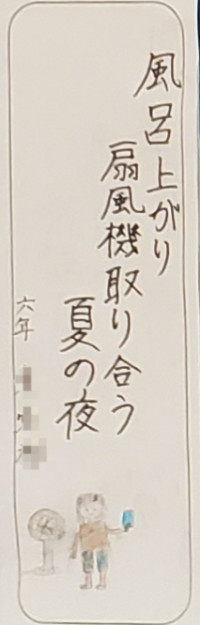 風呂上がり
扇風機取り合う
夏の夜
六年